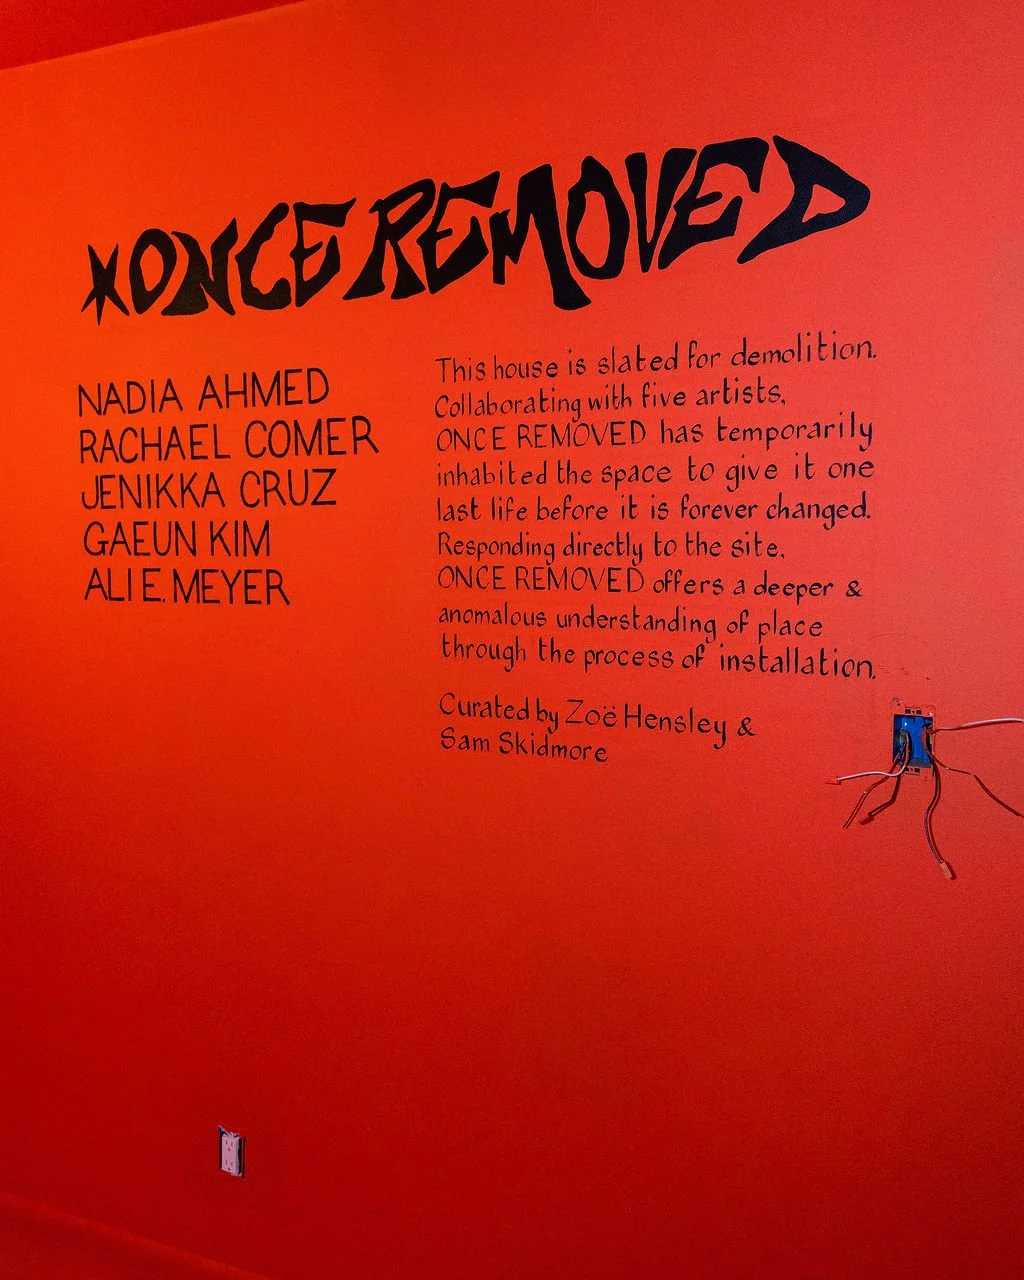 ONCE REMOVED
NADIA AHMED
RACHAEL COMER
JENIKKA CRUZ
GAEUN KIM
ALI E. MEYER
This house is slated for demolition.
Collaborating with five artists,
ONCE REMOVED has temporarily
inhabited the space to give it one
last life before it is forever changed.
Responding directly to the site,
ONCE REMOVED offers a deeper &
anomalous understanding of place
through the process of installation.
Curated by Zoë Hensley &
Sam Skidmore